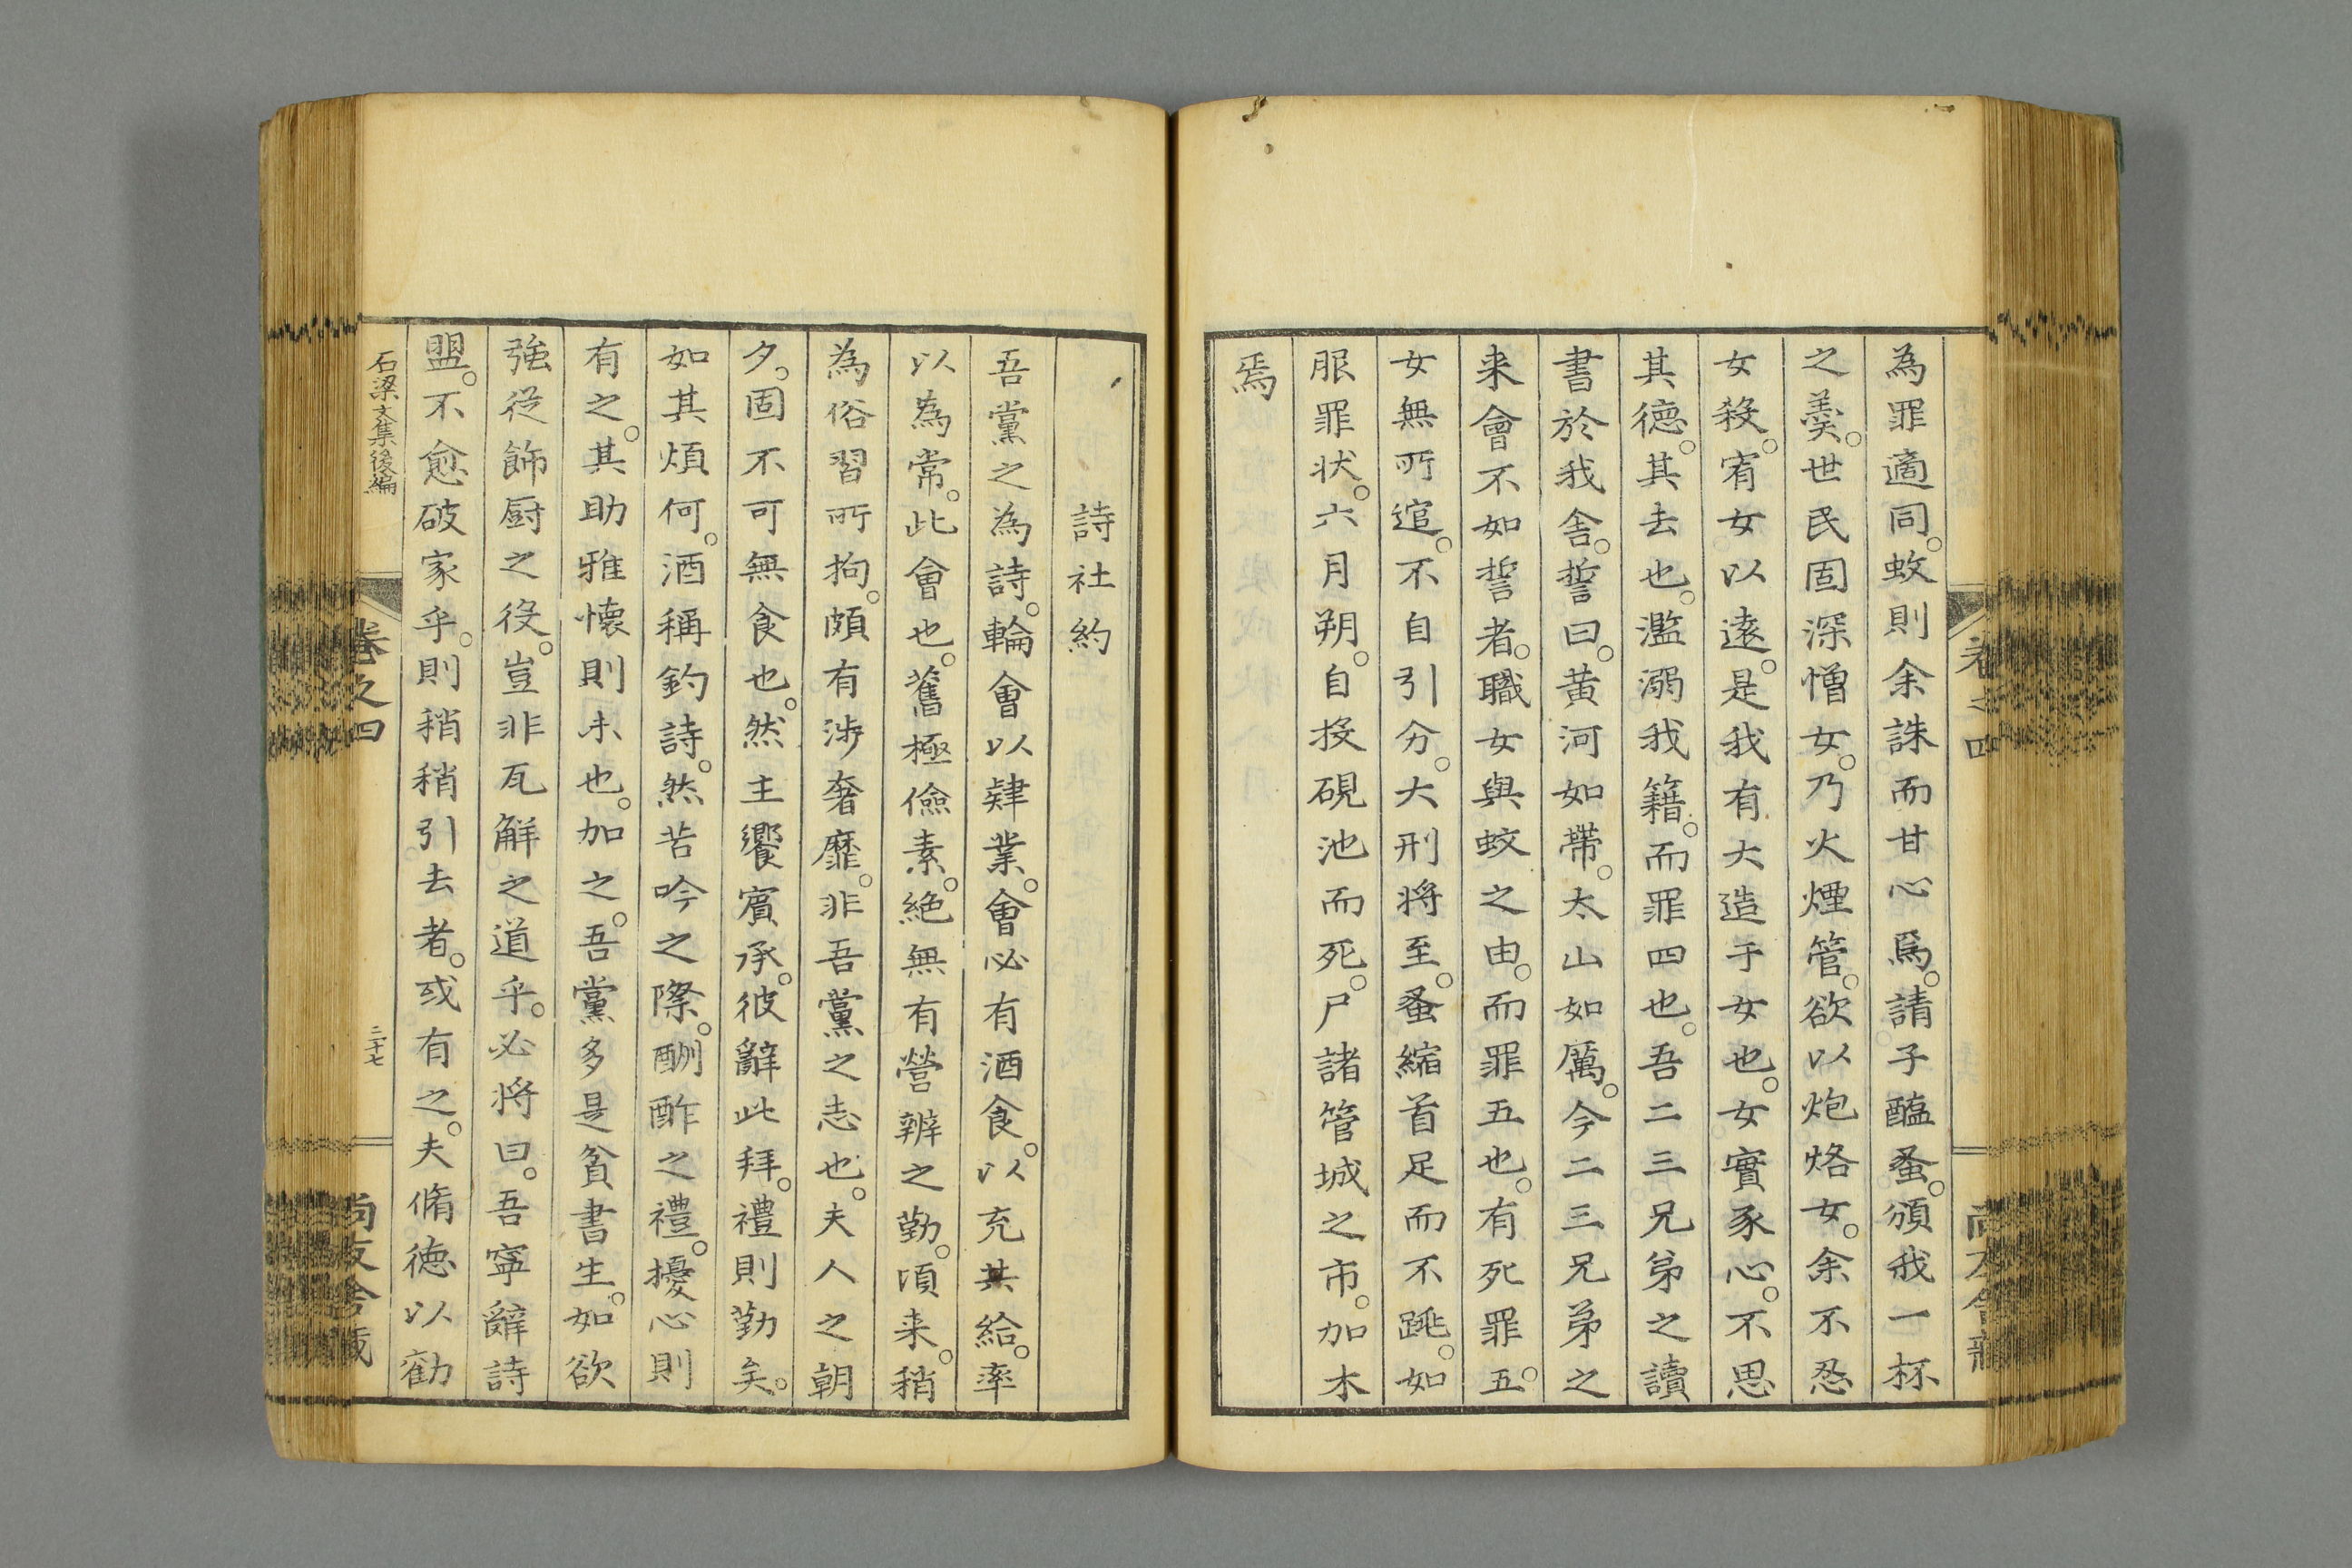 為罪適同。蚊則余誅而甘心焉。請子醢蚤。頒我一杯
之羹。世民固深憎女。乃火煙管。欲以炮烙女。余不忍
女殺。宥女以遠。是我有大造于女也。女實豕心。不思
其德。其去也。濫溺我籍。而罪四也。吾二三兄弟之讀
書於我舍。誓曰。黄河如帶。太山如厲。今二三兄弟之
来會不如誓者。職女與蚊之由。而罪五也。有死罪五。
女無所逭。不自引分。大刑将至。蚤縮首足而不跳。如
服罪状。六月朔。自投硯池而死。尸諸管城之市。加木
焉
卷之四
詩社約
吾黨之為詩。輪會以肄業。會必有酒食。以充其給。率
以為常。此會也。舊極儉素。絶無有營辨之勤。頃来。稍
為俗習所拘。頗有渉奢靡。非吾黨之志也。夫人之朝
夕。固不可無食也。然主饗賓承。彼辭此拜。禮則勤矣。
如其煩何。酒稱釣詩。然苦吟之際。酬酢之禮。擾心則
有之。其助雅懐則未也。加之。吾黨多是貧書生。如欲
強従飾厨之役。豈非瓦觧之道乎。必将曰。吾寧辭詩
盟。不愈破家乎。則稍稍引去者。或有之。夫脩徳以勸
石梁文集後編
卷之四
二十七
尚友舍藏